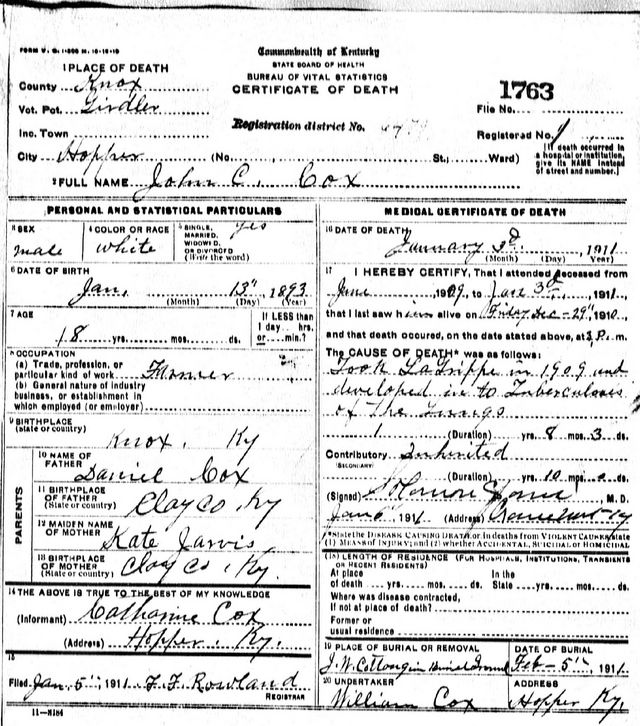 FORM V. S. 1-
Commonwealth of Kentucky
STATE BOARD OF HEALTH
BUREAU OF VITAL STATISTICS
CERTIFICATE OF DEATH
1 PLACE OF DEATH
County Knox
Vot. Pct. Girdler
Inc. Town
City Hopper (No. St.; Ward)
Registration district No.
1763
File No.
Registered No. 1
[If death occurred in a hospital or institution, give its NAME instead of street and number.]
2 FULL NAME John C. Cox
PERSONAL AND STATISTICAL PARTICULARS
3 SEX male
4 COLOR OR RACE white
5 SINGLE, MARRIED, WIDOWED, OR DIVORCED (Write the word) yes
6 DATE OF BIRTH
Jan. 13th 1893
(Month) (Day) (Year)
7 AGE
18 yrs. mos. ds.
If LESS than 1 day hrs. or min.?
8 OCCUPATION
(a) Trade, profession, or particular kind of work Farmer
(b) General nature of industry, business, or establishment in which employed (or employer)
9 BIRTHPLACE
(State or country) Knox, Ky
PARENTS
10 NAME OF FATHER Daniel Cox
11 BIRTHPLACE OF FATHER (State or country) Clay co, Ky
12 MAIDEN NAME OF MOTHER Kate Jarvis
13 BIRTHPLACE OF MOTHER (State or country) Clay co, Ky.
14 THE ABOVE IS TRUE TO THE BEST OF MY KNOWLEDGE
(Informant) Catharine Cox
(Address) Hopper, Ky.
15
Filed Jan. 5th 1911 F. F. Rowland
REGISTRAR
11-8184
MEDICAL CERTIFICATE OF DEATH
16 DATE OF DEATH
January 3d, 1911
(Month) (Day) (Year)
17 I HEREBY CERTIFY, That I attended deceased from
June 1909 to Jan 3d, 1911
that I last saw him alive on Dec-29th, 1910,
and that death occurred, on the date stated above, at P. m.
The CAUSE OF DEATH* was as follows:
Took LaGrippe in 1909 and
developed in to Tuberculoses
of the Lungs
1 (Duration) yrs. 8 mos. 3 ds.
Contributory Inherited
(SECONDARY)
(Duration) yrs. 10 mos. ds.
(Signed) Solomon M. D.
Jan 6 1911 (Address) Ky
*State the DISEASE CAUSING DEATH, or in deaths from VIOLENT CAUSES, state
(1) MEANS OF INJURY; and (2) whether ACCIDENTAL, SUICIDAL or HOMICIDAL
(18) LENGTH OF RESIDENCE (FOR HOSPITALS, INSTITUTIONS, TRANSIENTS OR RECENT RESIDENTS)
At place of death yrs. mos. ds. In the State yrs. mos. ds.
Where was disease contracted,
If not at place of death?
Former or
usual residence
19 PLACE OF BURIAL OR REMOVAL
J. W. Burial Ground
DATE OF BURIAL
Feb-5th, 1911
20 UNDERTAKER
William Cox
ADDRESS
Hopper Ky.